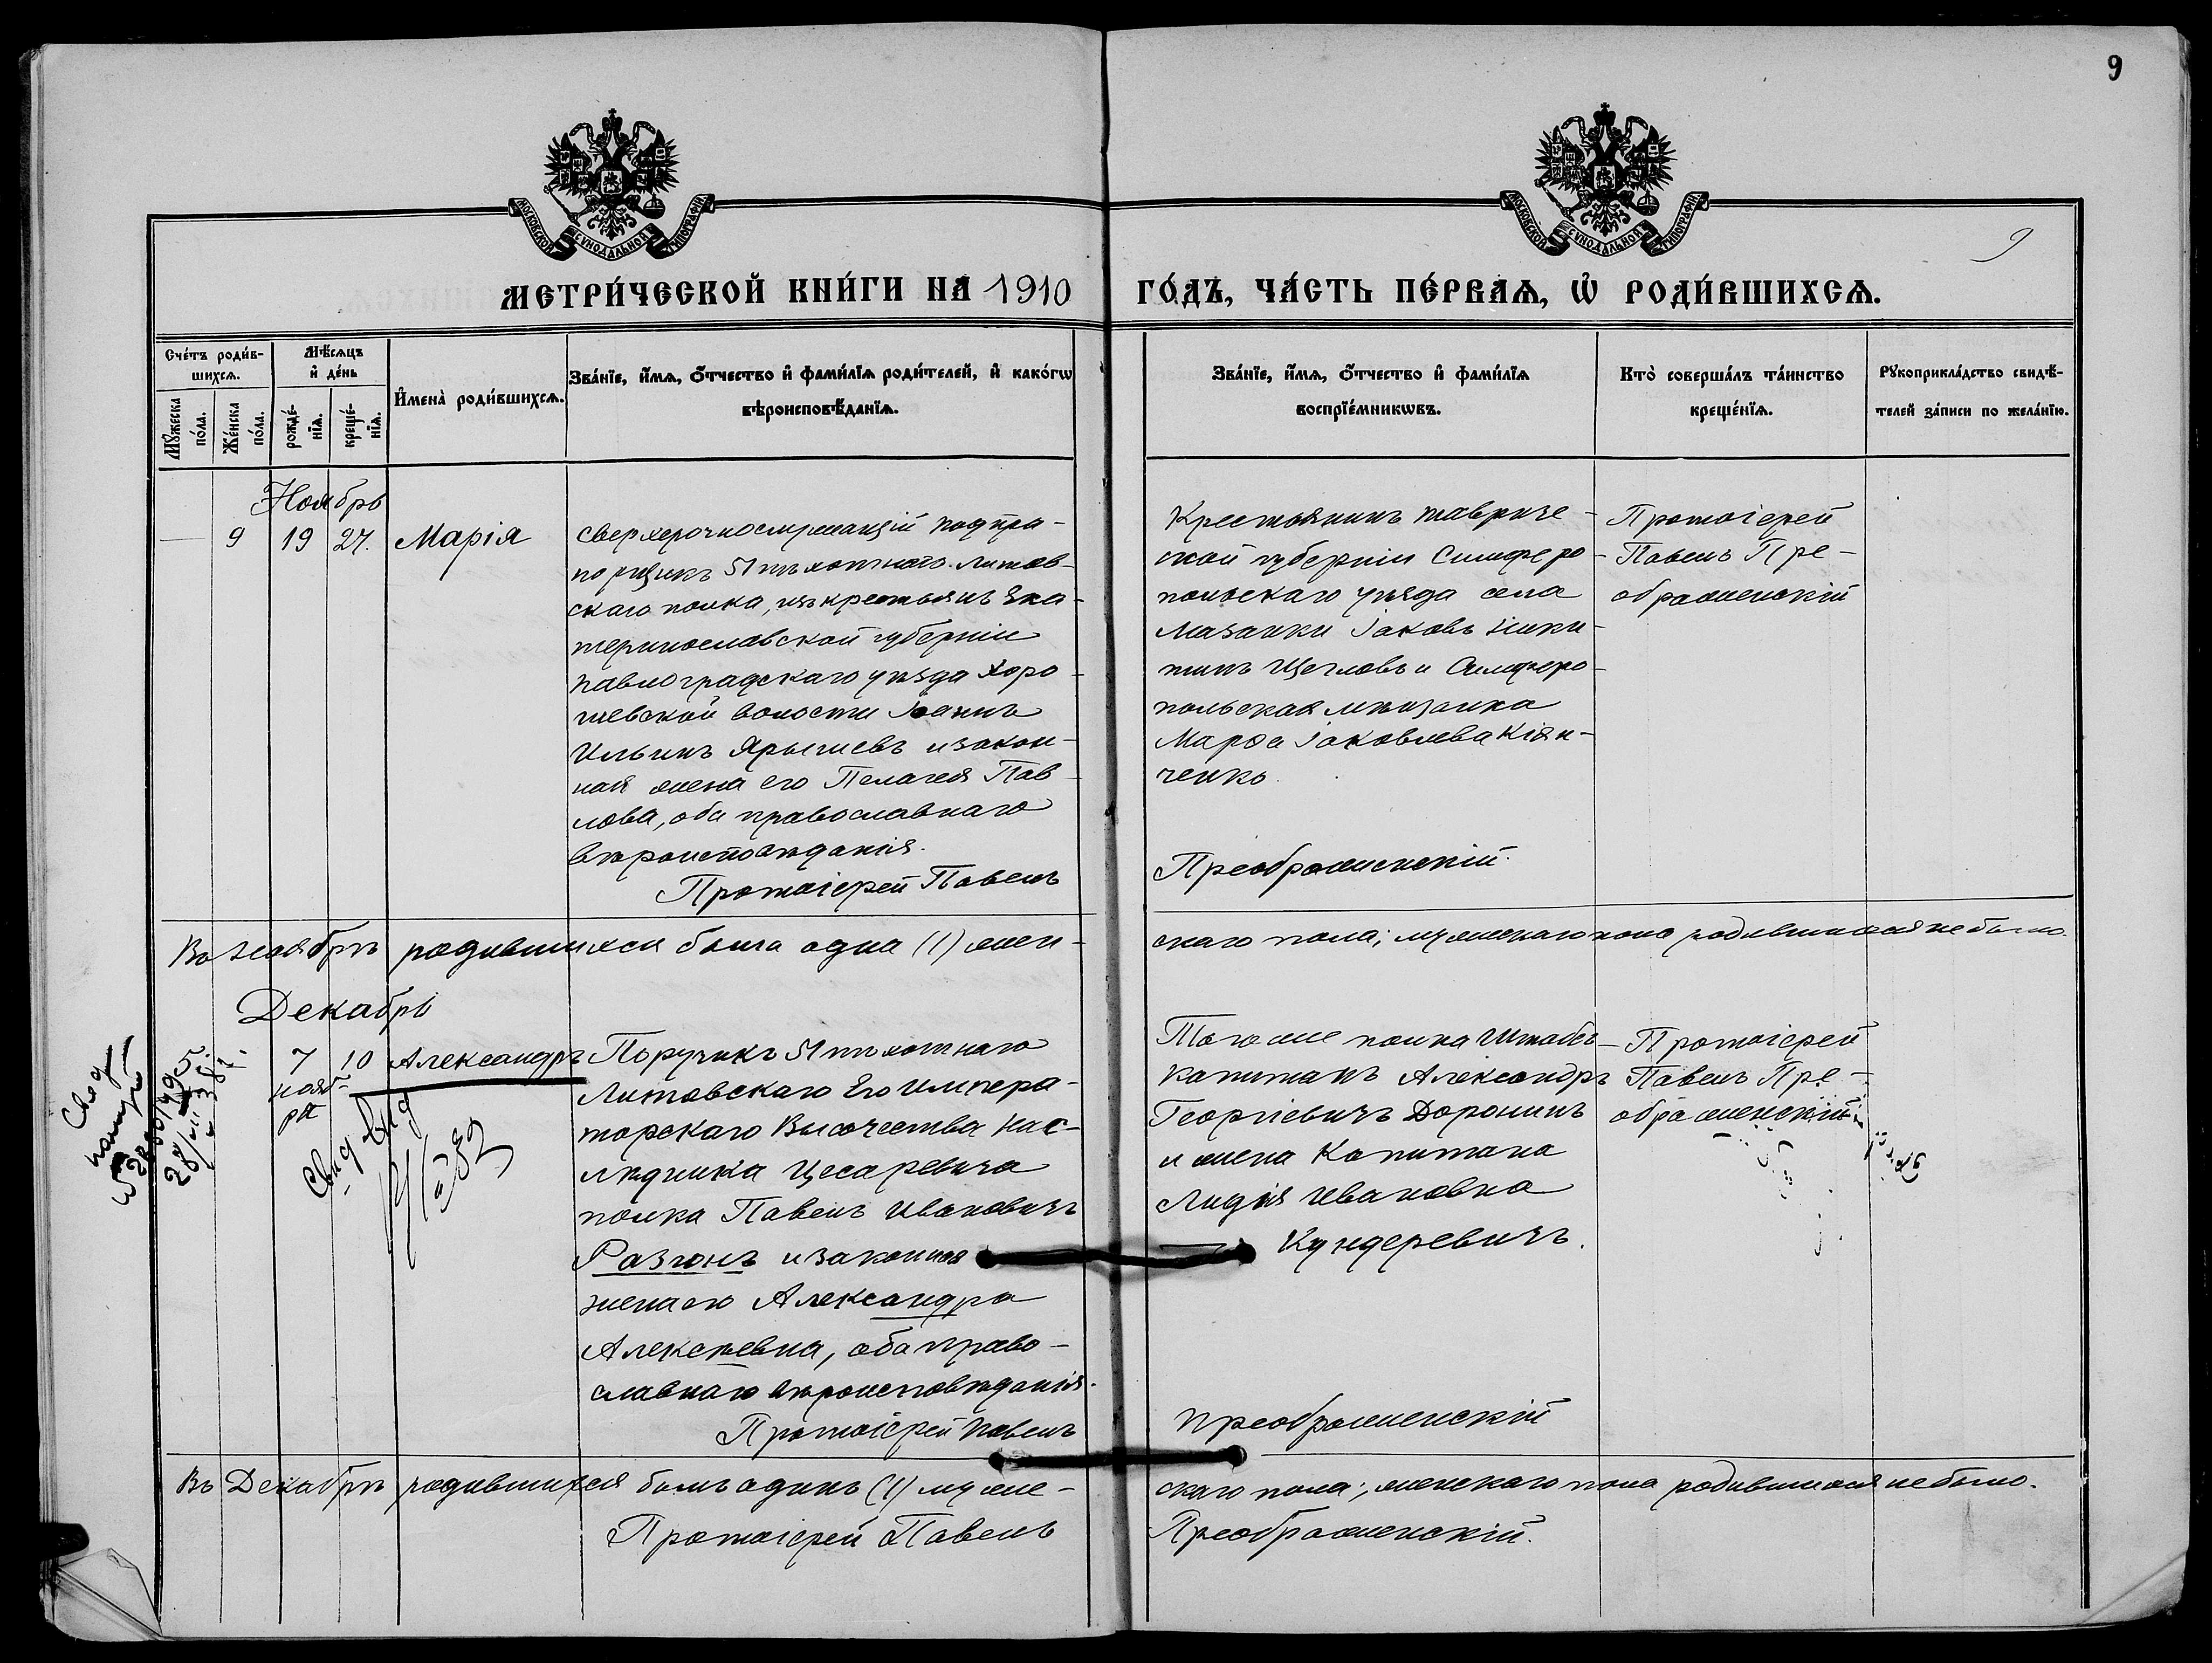 9
МОСКОВСКОЙ СѴНОДАЛЬНОЙ ТИПОГРАФІИ
МОСКОВСКОЙ СѴНОДАЛЬНОЙ ТИПОГРАФІИ
9
МЕТРИ́ЧЕСКОЙ КНИ́ГИ НА 1910 ГО́ДЪ, ЧА́СТЬ ПЕ́РВАѦ, Ѡ҆ РОДИ́ВШИХСѦ.
Сче́тъ роди́в-
шихсѧ.
Мꙋ́жеска по́ла.
Же́нска по́ла.
Мѣ́сѧцъ
и҆ де́нь
рожде́-
нїѧ.
креще́-
нїѧ.
И҆мена̀ роди́вшихсѧ.
Зва́нїе, и҆́мѧ, ѻ҆́тчество и҆ фами́лїѧ роди́телей, и҆ како́гѡ
вѣроисповѣ́данїѧ.
Зва́нїе, и҆́мѧ, ѻ҆́тчество и҆ фами́лїѧ
воспрїе́мникѡвъ.
Кто̀ соверша́лъ та́инство
креще́нїѧ.
Рꙋкоприкла́дство свидѣ́-
телей за́писи по жела́нїю.
Ноябрь
— 9 19 27. Марія
Сверхсрочнослужащій подпра-
порщикъ 51 пѣхотнаго Литов-
скаго полка, изъ крестьянъ Ека-
теринославской губерніи
Павлоградскаго уѣзда Хоро-
шевской волости Іоаннъ
Ильинъ Ярышевъ и закон-
ная жена его Пелагея Пав-
лова, оба православнаго
вѣроисповѣданія.
Протоіерей Павелъ
Крестьянинъ Тавриче-
ской губерніи Симферо-
польскаго уѣзда села
Мазанки Іаковъ Ники-
тинъ Щегловъ и Симферо-
польская мѣщанка
Марѳа Іаковлева Кіян-
ченко.
Преображенскій.
Протоіерей
Павелъ Пре-
ображенскій
Въ ноябрѣ родившихся была одна (1) жен-
скаго пола; мужескаго пола родившихся не было.
Декабрь
7 10 Александръ
нояб-
ря
Поручикъ 51 пѣхотнаго
Литовскаго Его Импера-
торскаго Высочества Нас-
лѣдника Цесаревича
полка Павелъ Ивановичъ
Разгонъ и законная
жена его Александра
Алексѣевна, оба право-
славнаго вѣроисповѣданія.
Протоіерей Павелъ
Того же полка Штабсъ-
Капитанъ Александръ
Георгіевичъ Доронинъ
и жена Капитана
Лидія Ивановна
Кундеревичъ.
Преображенскій
Протоіерей
Павелъ Пре-
ображенскій
Въ Декабрѣ родившихся былъ одинъ (1) муже-
скаго пола; женскаго пола родившихся не было.
Протоіерей Павелъ
Преображенскій.